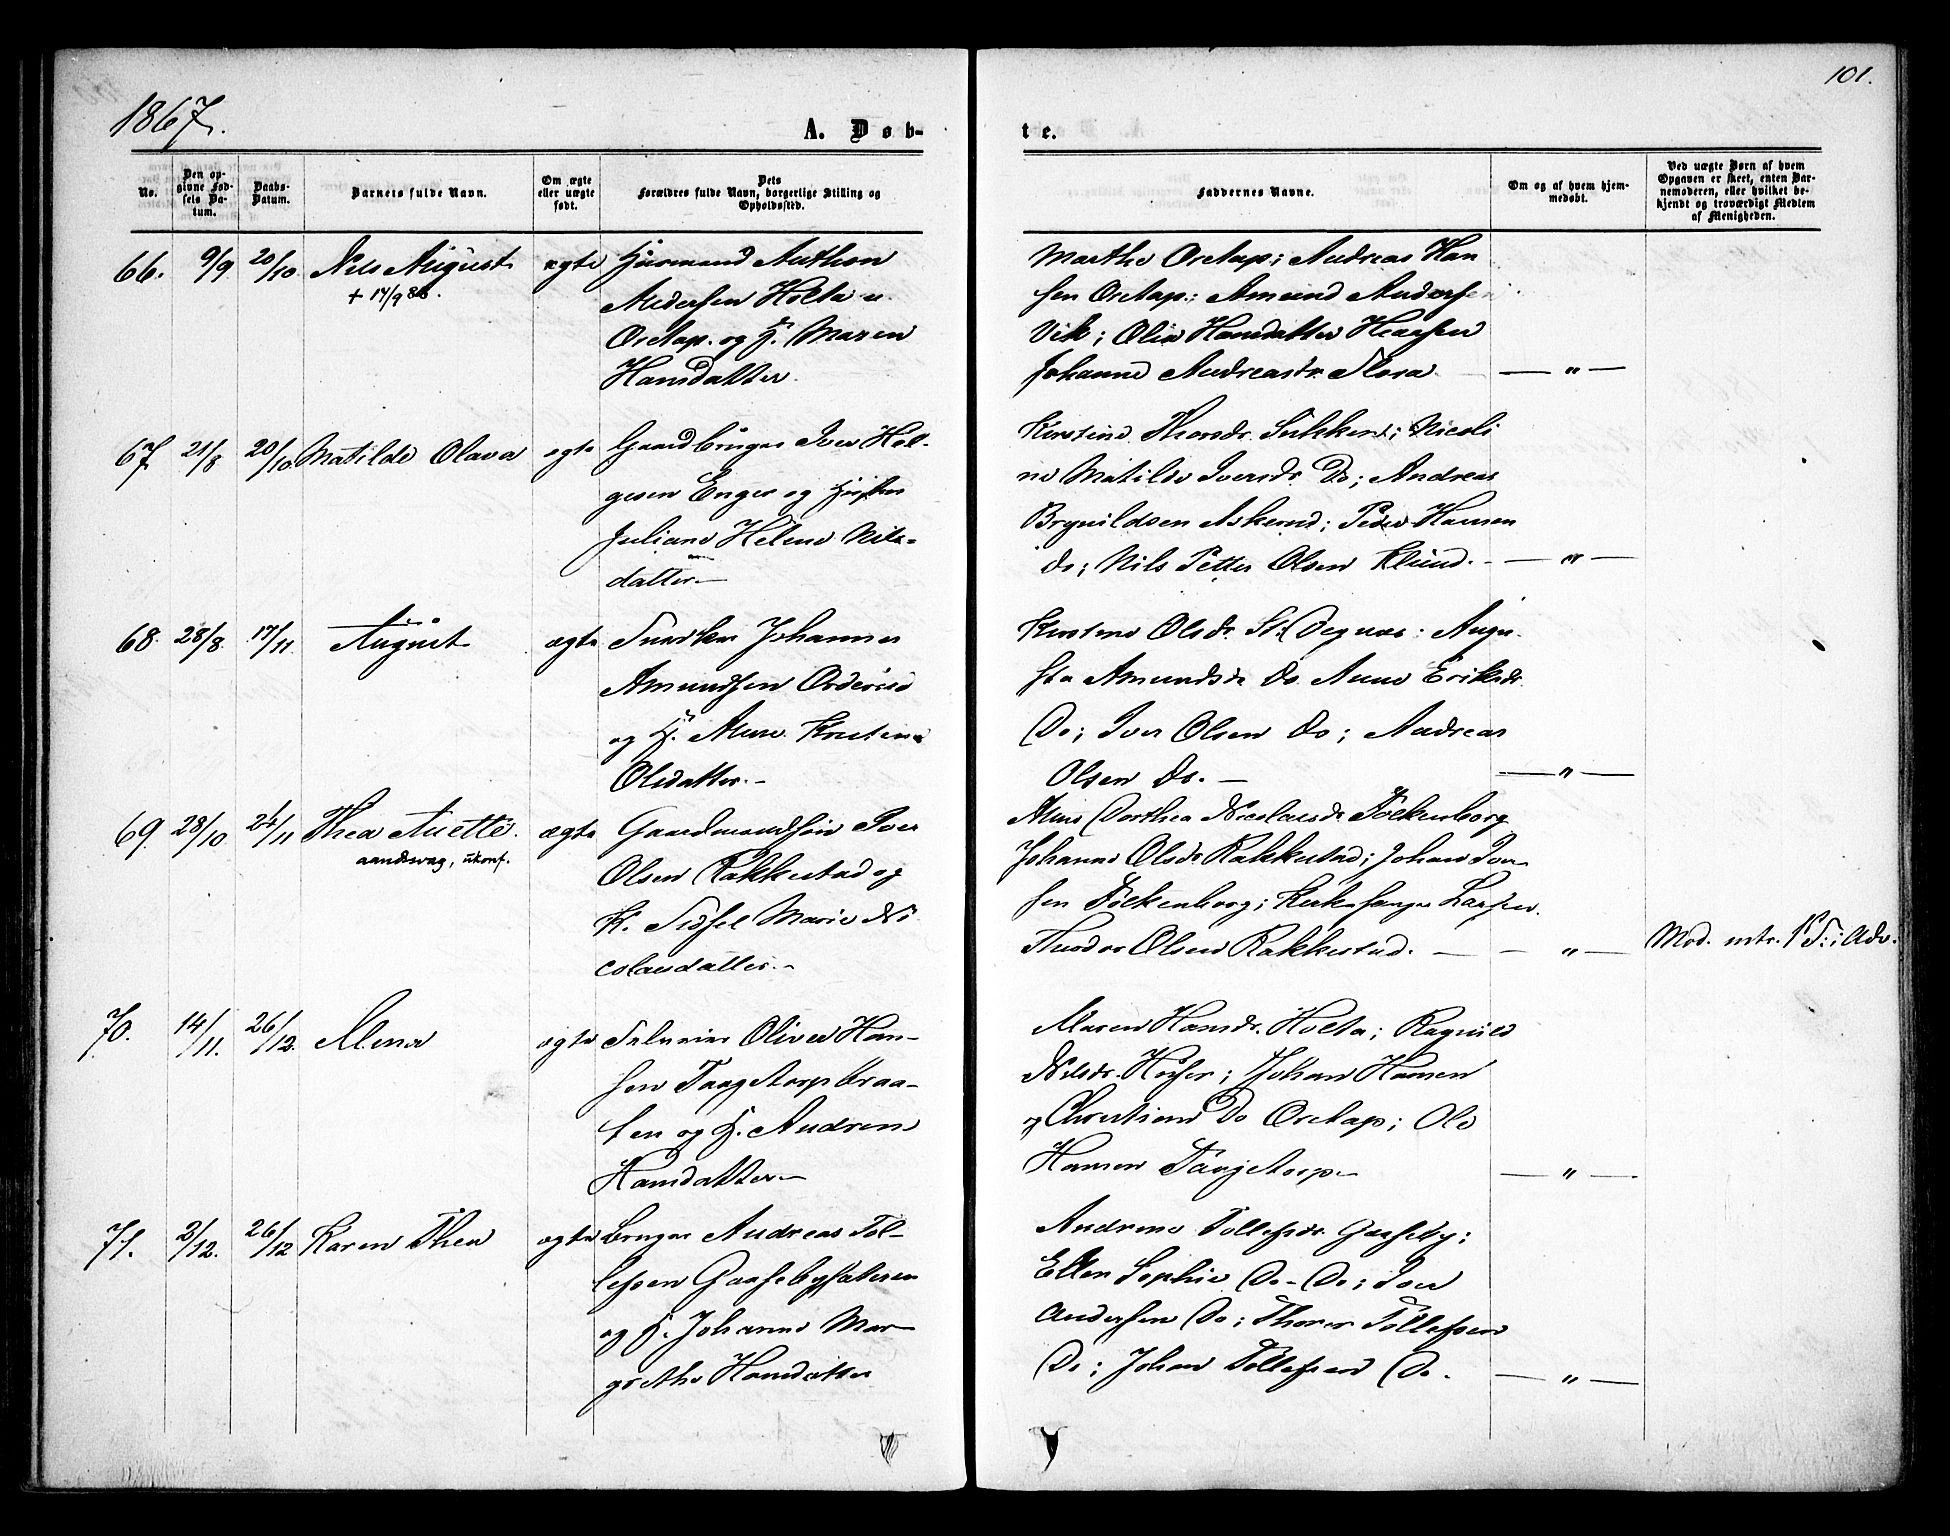 101.
1867.
A. Døb-
te.
No.
Den op-
givne Fød-
sels Da-
tum.
Daabs-
Datum.
Barnets fulde Navn.
Om ægte
eller uægte
født.
Dets
Forældres fulde Navn, borgerlige Stilling og
Opholdssted.
Faddernes Navne.
Om og af hvem hjem-
medøbt.
Ved uægte Børn af hvem
Opgaven er skeet, enten Bar-
nemoderen, eller hvilket be-
kjendt og troværdigt Medlem
af Menigheden.
66. 9/9 20/10 Nels August ægte Huusmand Anthon
+ 14/9 88.
Andersen Holta u.
Oretap. og H. Maren
Hansdatter.
Marthe Oretap; Andreas Han
sen Oretap.; Amund Andersen
Vik; Olia Hansdatter
Johanne Andreasdr.
— " —
67 21/8 20/10 Matilde Olava ægte Gaardbruger Iver Hel-
gesen Enger og Hustru
Juliane Helene Nils-
datter.—
Kirstine Thorsdr. Sikkend; Nicoli
ne Matilde Iversdr. Do; Andreas
Brynildsen Askerud; Peder Hansen
do; Nils Petter Olsen Klund. — " —
68. 28/8. 17/11 August ægte Snedker Johannes
Amundsen
og H. Anne Kristine
Olsdatter.—
Kirstine Olsdr. : Augu-
sta Amundsdr Do Anne Eriksdr.
Do; Iver Olsen Do; Andreas
Olsen Do. —
— " —
69. 28/10 24/11 Thea Anette. ægte Gaardmandssøn Iver
aandssvag, ukonf.
Olsen Rakkestad og
K. Sissel Marie Ni
colausdatter.—
Anne Dorthea Nicolausdr Folkenborg
Johanne Olsdr Rakkestad; Johan Iver
sen Folkenborg; Kirkesanger Larsen.
Theodor Olsen Rakkestad. — — " —
Mod. intr. 1 S. i Adv.
70. 14/11. 26/12. Alena ægte Selveier Oliver Han-
sen Taagetorpbraa-
ten og H. Andrine
Hansdatter—
Maren Hansdr. Holta; Ragnild
Nilsdr. ; Johan Hansen
og Christiane Do Oretap; Ole
Hansen Taagetorp—
— " —
71. 2/12. 26/12 Karen Thea ægte Bruger Andreas Tol-
lefsen Gaasebysæteren
og H. Johanne Mar-
grethe Hansdatter
Andrine Tollefsdr. Gaaseby;
Ellen Sophie Do- Do; Iver
Andersen Do; Thorer Tollefsen
Do; Johan Tollefsen Do.
— " —